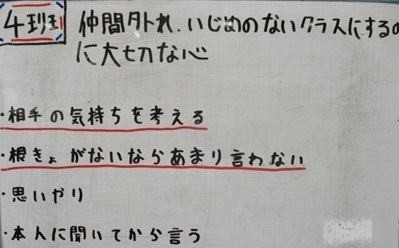 4班
仲間外れ、いじめのないクラスにするの
に大切な心
・相手の気持ちを考える
・根きょがないならあまり言わない
・思いやり
・本人に聞いてから言う